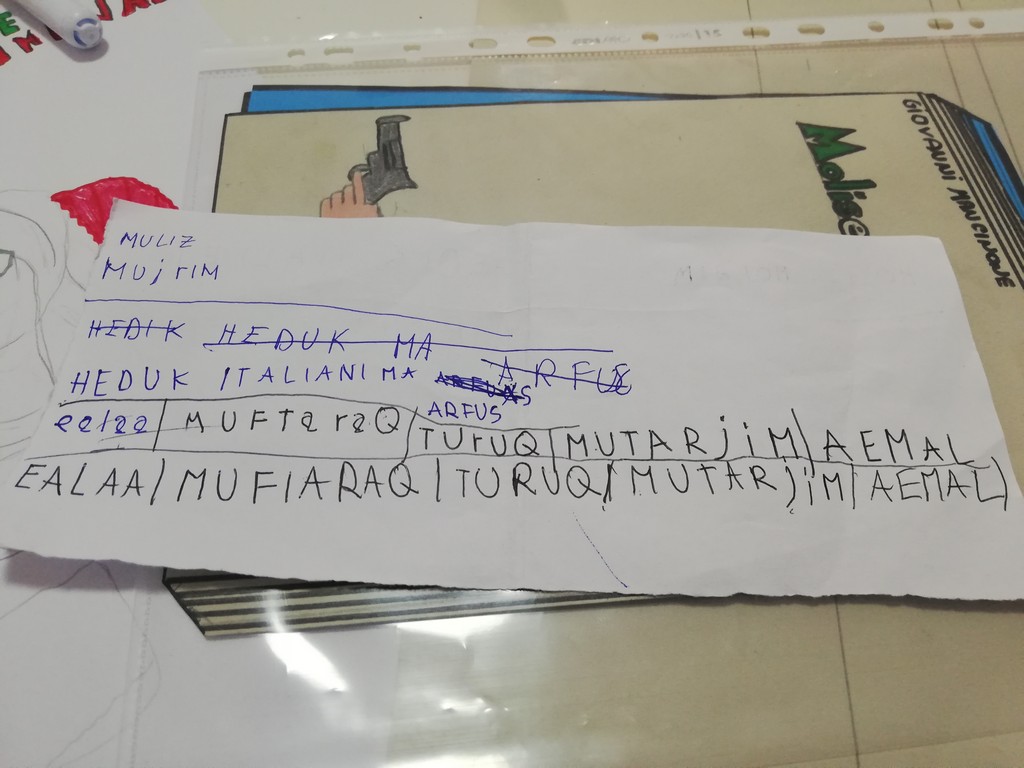 Molise
GIOVANNI MANCINONE
MULIZ
MUjrIM
HEDIK HEDUK MA ARFUS
HEDUK ITALIANI MA
ARFUS
ealaa | MUFTaraQ | TUruQ | MUTARjiM | AEMAL
EALAA | MUFIARAQ | TURUQ | MUTARjiM | AEMAL